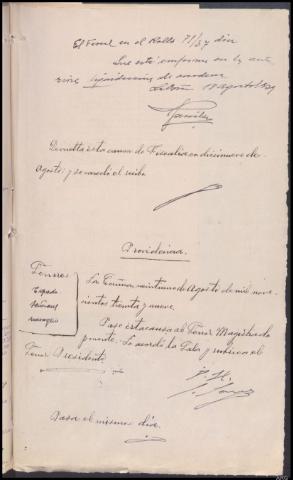 El Fiscal en el Rollo 71/37 dice
Que está conforme con la ante
rior liquidación de condena
Agosto 1939
Devuelta esta causa de Fiscalía en diecinueve de
Agosto; y se acusó el recibo
Providencia.
Señores
La Coruña, veintiuno de Agosto de mil nove-
cientos treinta y nueve.
Pase esta causa al Señor Magistrado
ponente. Lo acordó la Sala y rubrica el
Señor Presidente.
Pasa el mismo día.